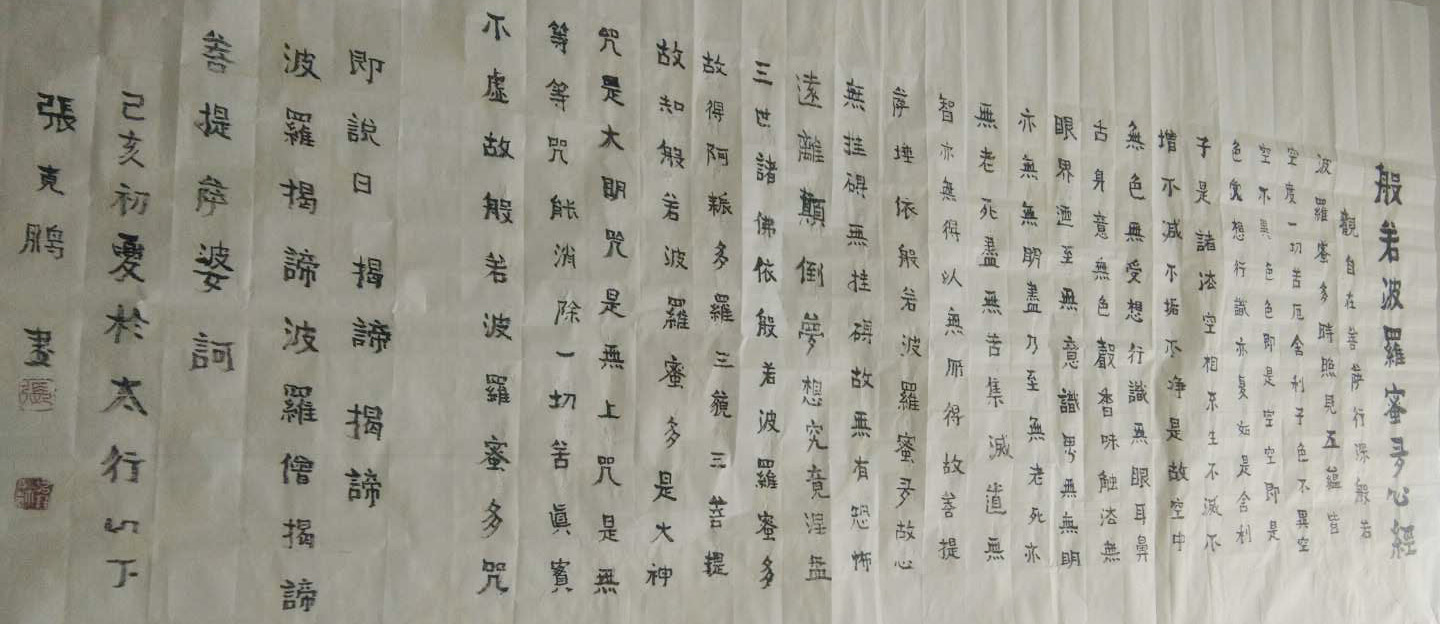 般若波羅蜜多心經
觀自在菩薩行深般若
波羅蜜多時照見五蘊皆
空度一切苦厄舍利子色不異空
空不異色色即是空空即是
色受想行識亦復如是舍利
子是諸法空相不生不滅不
增不减不垢不净是故空中
無色無受想行識無眼耳鼻
舌身意無色聲香味触法無
眼界迺至無意識思無無明
亦無無明盡乃至無老死亦
無老死盡無苦集滅道無
智亦無得以無所得故菩提
薩埵依般若波羅蜜多故心
無挂碍無挂碍故無有恐怖
遠離顛倒夢想究竟涅盘
三世諸佛依般若波羅蜜多
故得阿耨多羅三藐三菩提
故知般若波羅蜜多是大神
咒是大明咒是無上咒是無
等等咒能消除一切苦真實
不虛故般若波羅蜜多咒
即說曰揭諦揭諦
波羅揭諦波羅僧揭諦
菩提薩婆訶
己亥初夏於太行山下
張克鹏畫